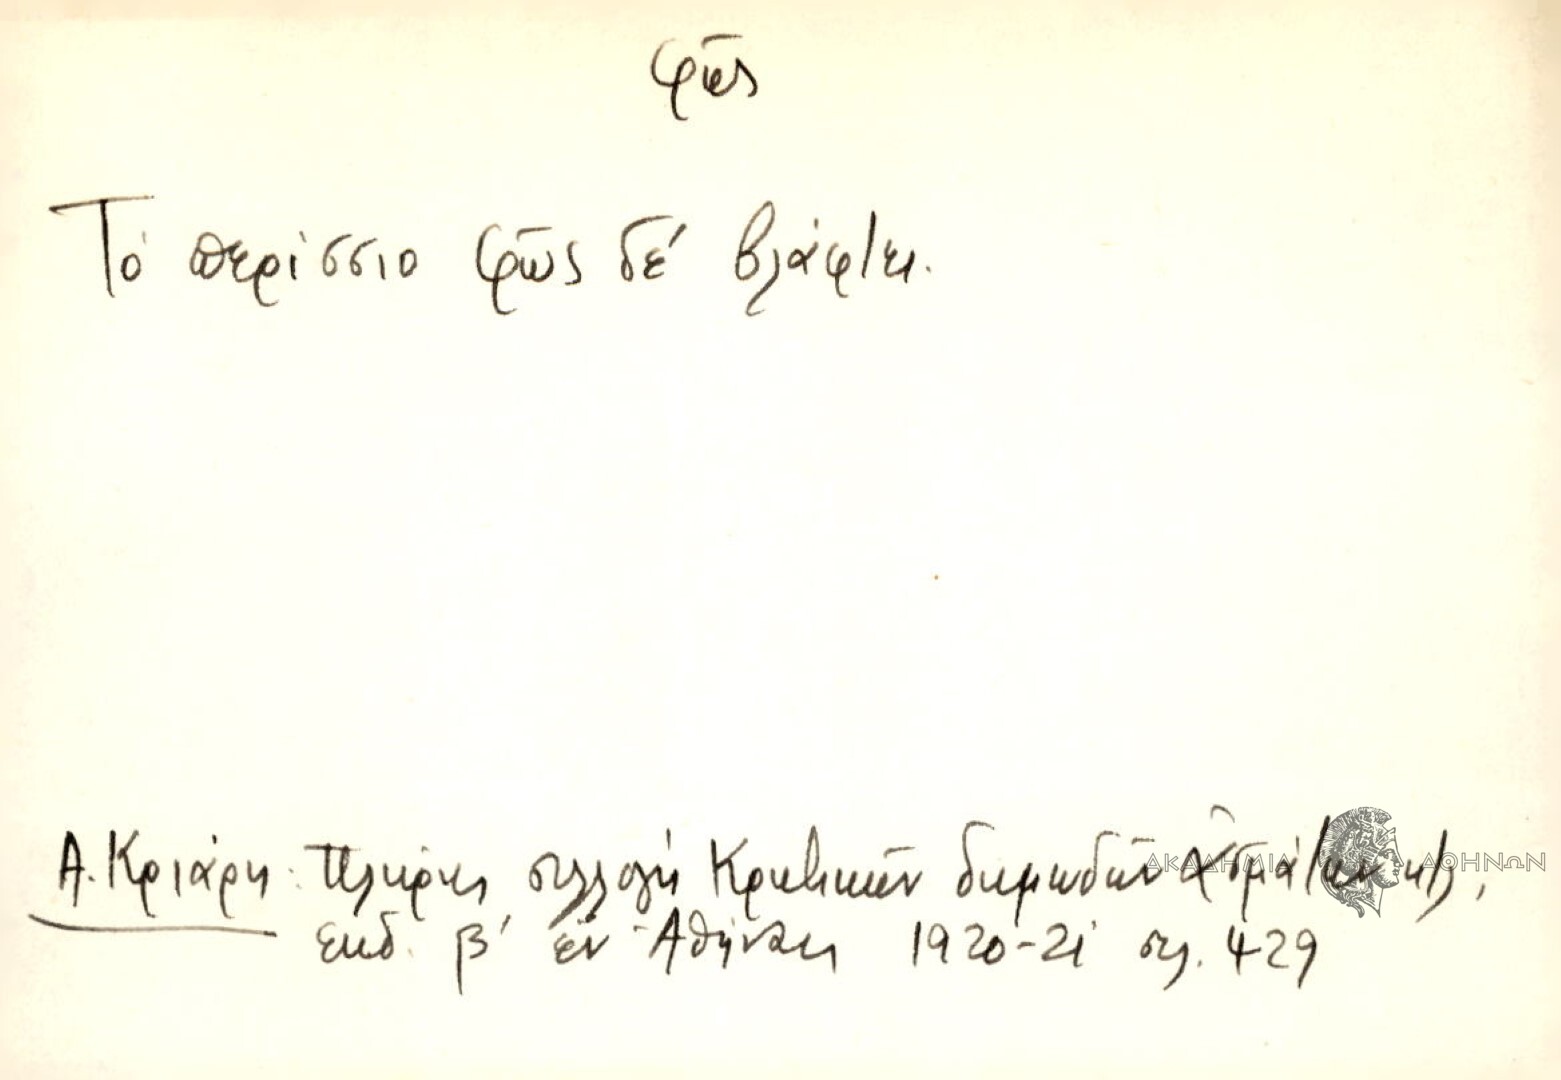 φῶς
Τό περίσσιο φῶς δέ βλάφτει.
Α. Κριάρη: Πλήρης συλλογή Κρητικῶν δημωδῶν ᾀσμάτων κτλ,
ἐκδ. β' ἐν Ἀθήναις 1920-21 σελ. 429
ΑΚΑΔΗΜΙΑ ΑΘΗΝΩΝ